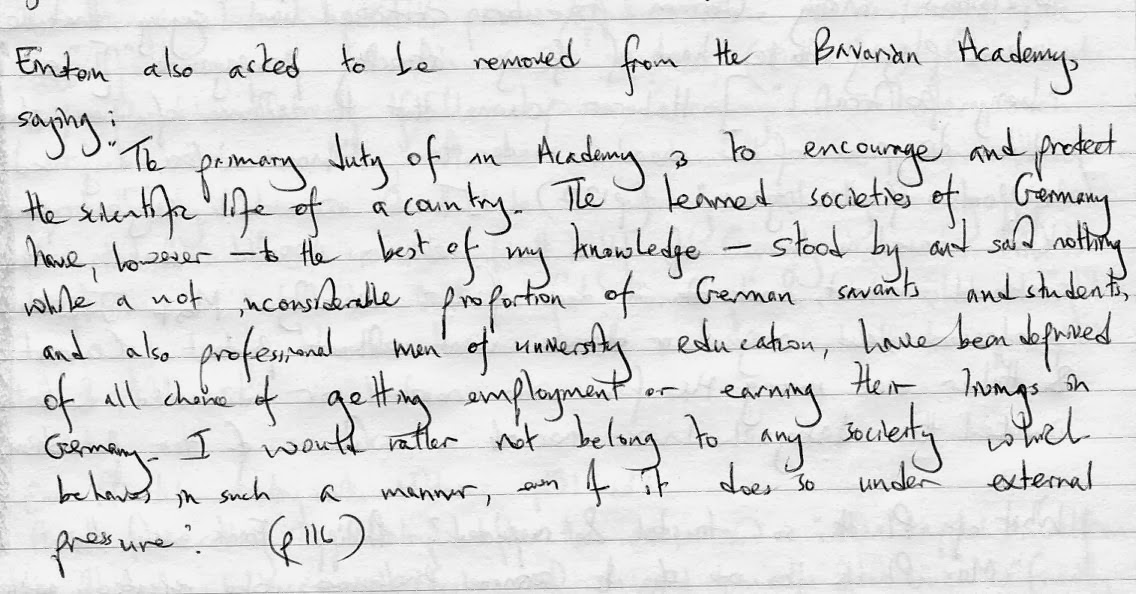 Einstein also asked to be removed from the Bavarian Academy,
saying:
"The primary duty of an Academy is to encourage and protect
the scientific life of a country. The learned societies of Germany
have, however – to the best of my knowledge – stood by and said nothing
while a not inconsiderable proportion of German savants and students,
and also professional men of university education, have been deprived
of all chance of getting employment or earning their livings in
Germany. I would rather not belong to any society which
behaves in such a manner, even if it does so under external
pressure". (p116)